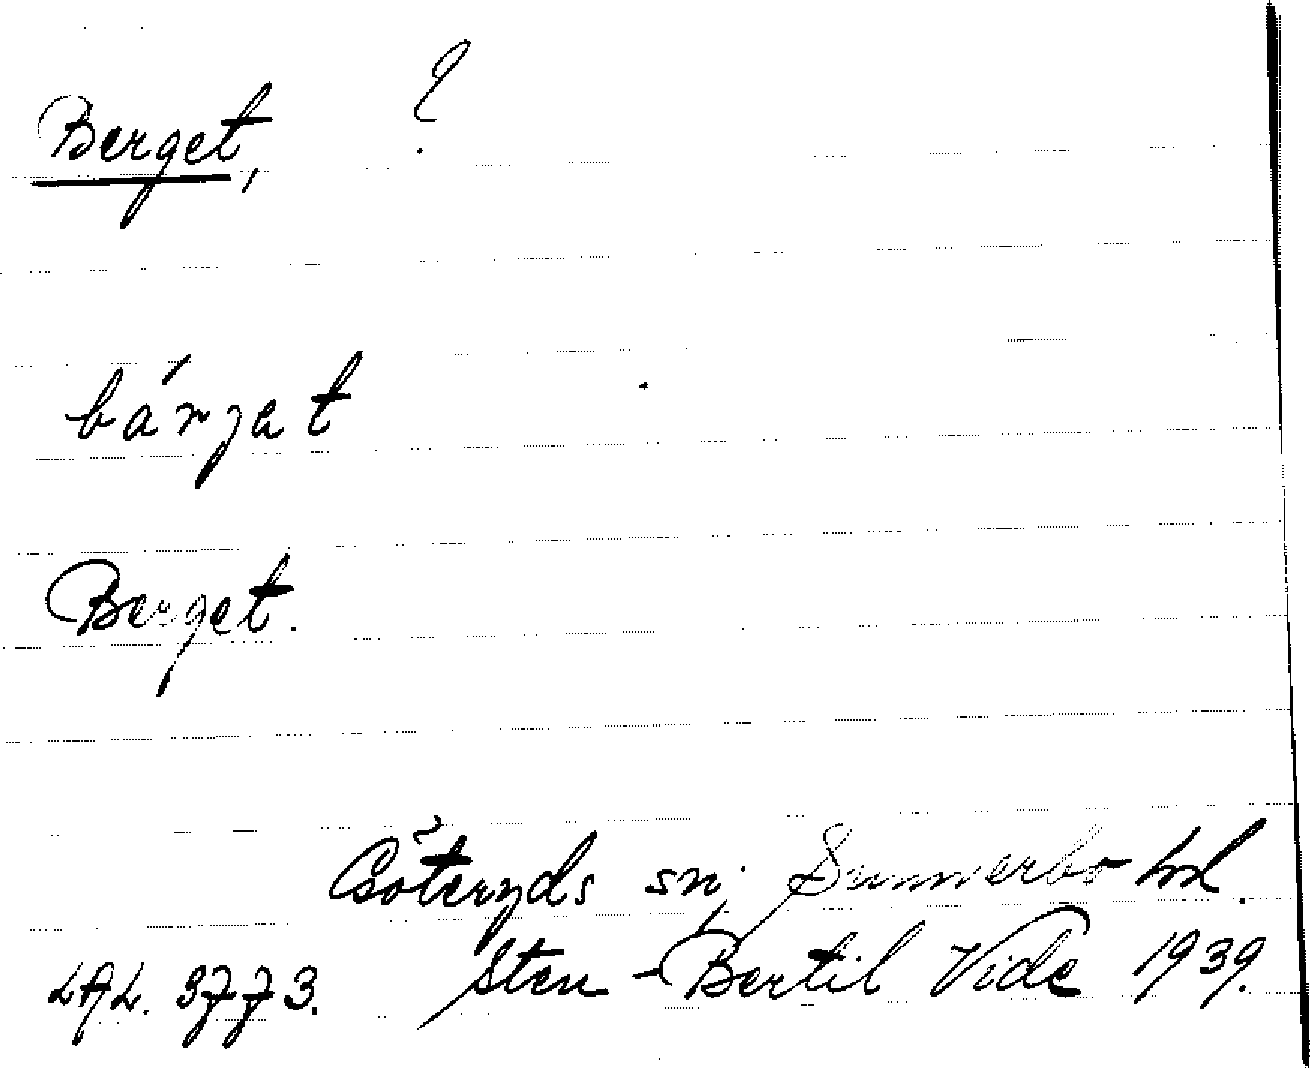 Berget, ?
bárjat
Berget.
Göteryds sn, Sunnerbo hd.
LAL. 3773. Sten-Bertil Vide 1939.